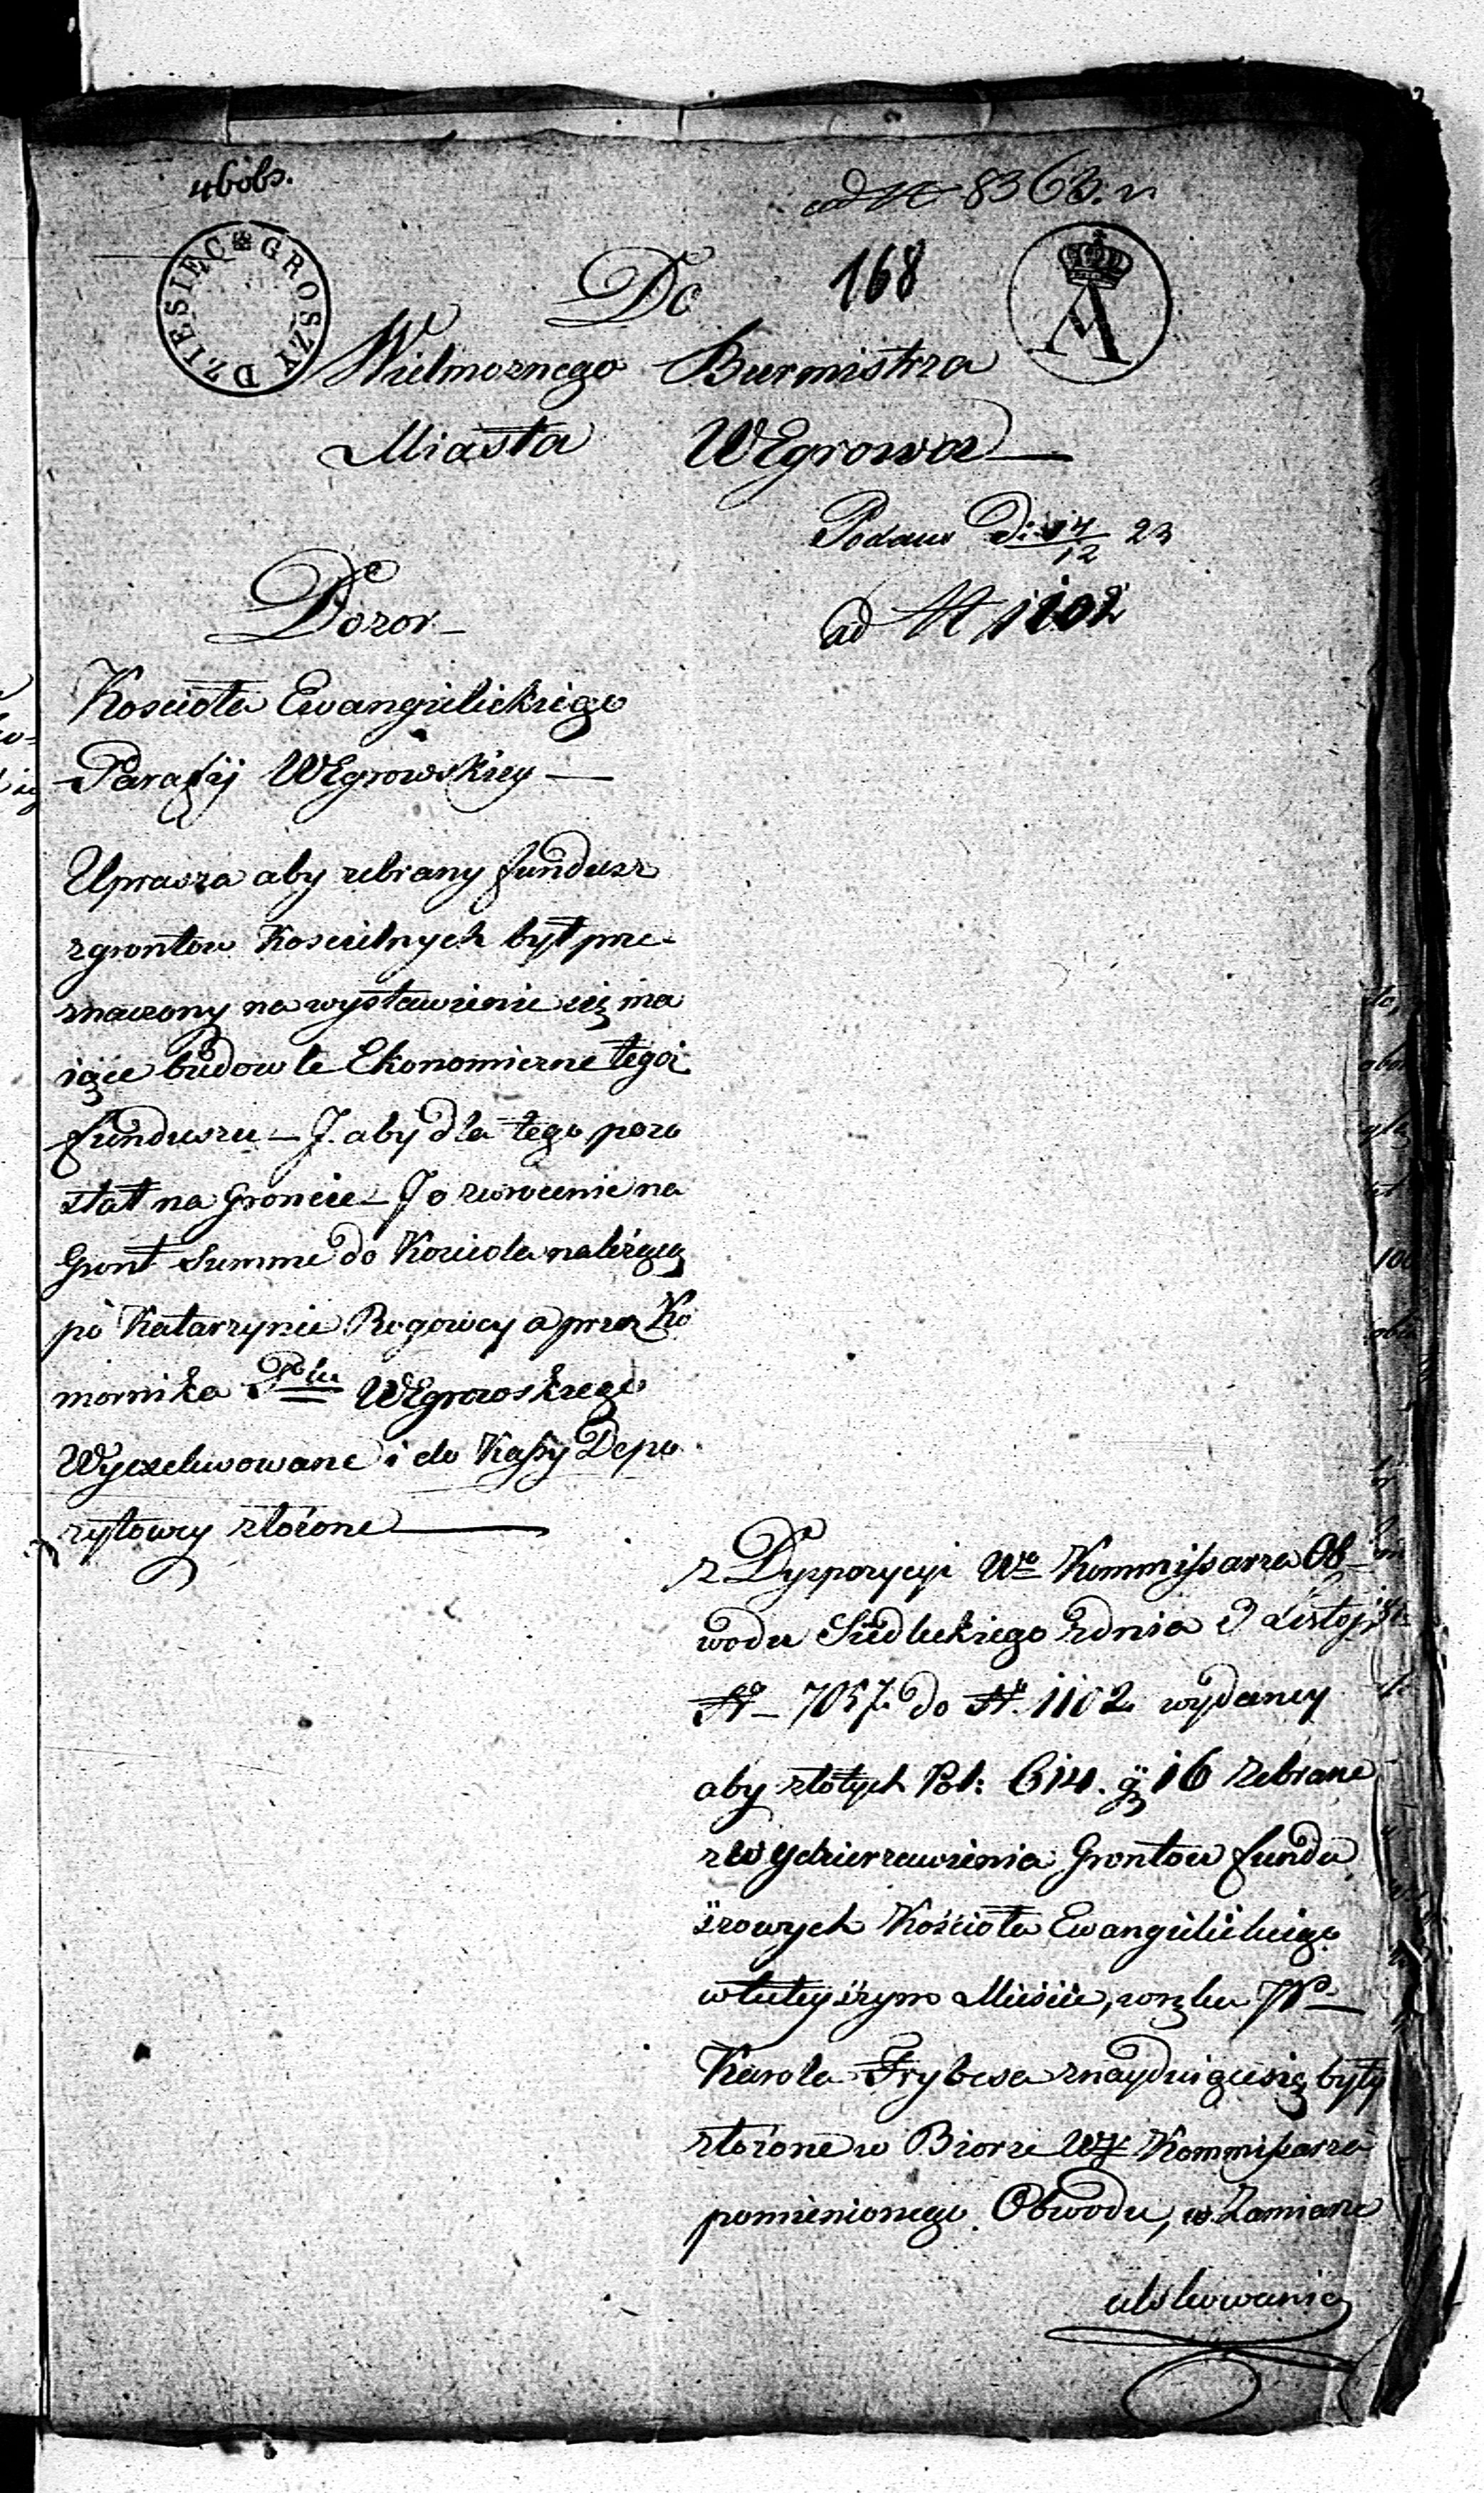 ad N 8363.
DZIESIĘĆ GROSZY
A
168
Do
Wielmoznego Burmistrza
Miasta WEgrowa
Podano D: 14/12 23
ad N 1102
Dozor
Koscioła Ewangielickiego
Parafij WEgrowskiey
Uprasza aby zebrany fundusz
zgrontow Koscielnych był prze-
znaczony na wystawienie się ma
iące budowle Ekonomiczne tegoż
funduszu - J. aby dla tego pozo
stał na Groncie - J o zwrocenie na
Gront Summe do Kosciola należącą
po Katarzynie Rogowey a przez Ko
mornika Ptu WEgrowskiego
Wyexekwowane i do Kassy Depo
zytowey złożone
z Dyspozycyi Wo Kommissarza Ob-
wodu Siedleckiego zdnia 9 Listop
No 7057. do No. 1102 wydaney
aby złotych Pol: 614. g 16 zebrane
zwydzierzawienia Grontow fundu
szowych Kościoła Ewangielickiego
wtuteyszym Mieście, wręku JP
Karola Frybesa znayduiące się były
złożone w Biorze WJ Kommissarza
pomienionego Obwodu, w Zamiarze
ulokowania